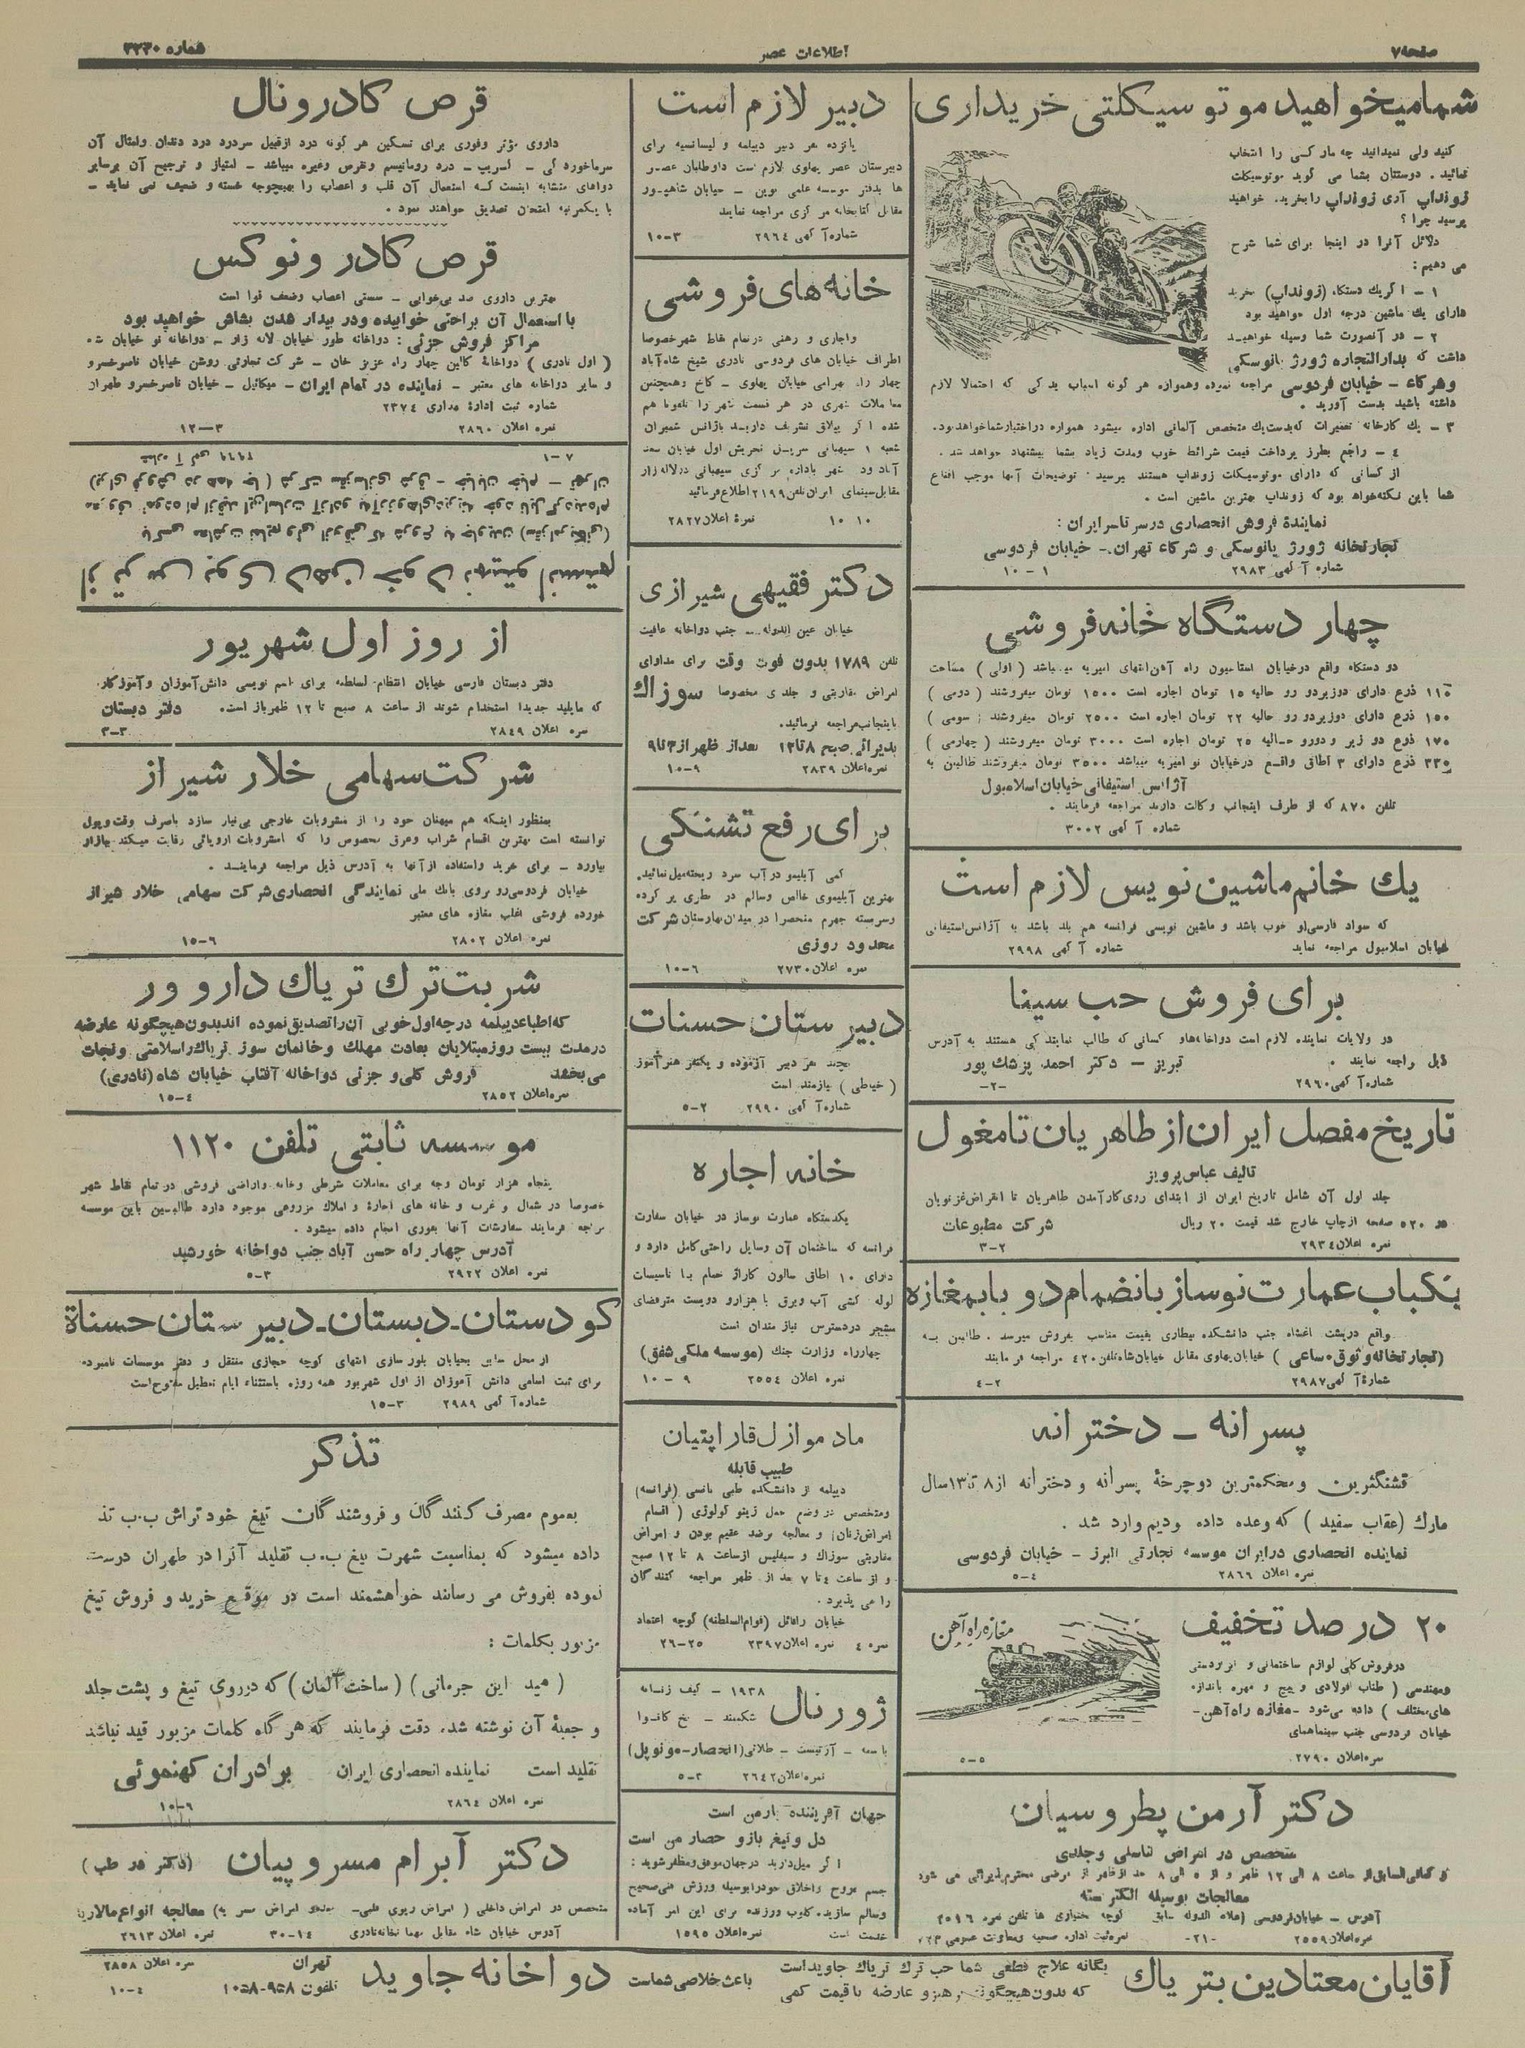 صفحه ۷
اطلاعات عصر
شماره ۳۲۳۰
شما میخواهید موتوسیکلتی خریداری
کنید ولی نمیدانید چه مارکسی را انتخاب
نمائید . دوستتان بشما می گوید موتوسیکلت
زونداپ آری زونداپ را بخرید. خواهید
پرسید چرا ؟
دلائل آنرا در اینجا برای شما شرح
می دهیم :
۱ - اگر یك دستگاه (زونداپ) بخرید
دارای یك ماشین درجه اول خواهید بود
۲ - در آنصورت شما وسیله خواهید
داشت که بدارالتجاره ژورژ یانوسکی
وشرکاء - خیابان فردوسی مراجعه نموده وهمواره هر گونه اسباب یدکی که احتمالا لازم
داشته باشید بدست آورید .
۳ - یك کارخانه تعمیرات که بدست یك متخصص آلمانی اداره میشود همواره دراختیار شما خواهد بود.
۴ - راجع بطرز پرداخت قیمت شرائط خوب ومدت زیاد بشما پیشنهاد خواهد شد .
از کسانی که دارای موتوسیکلت زونداپ هستند بپرسید توضیحات آنها موجب اقناع
شما باین نکته خواهد بود که زونداپ بهترین ماشین است .
نماینده فروش انحصاری درسرتاسر ایران :
تجارتخانه ژورژ یانوسکی و شرکاء تهران - خیابان فردوسی
شماره آگهی ۲۹۸۳ ۱ - ۱۰
چهار دستگاه خانه فروشی
دو دستگاه واقع درخیابان استاسیون راه آهن انتهای امیریه میباشد (اولی) مساحت
۱۱۵ ذرع دارای دوزیردو رو حالیه ۱۵ تومان اجاره است ۱۵۰۰ تومان میفروشند (دومی)
۱۵۰ ذرع دارای دوزیردو رو حالیه ۲۲ تومان اجاره است ۲۵۰۰ تومان میفروشند (سومی)
۱۷۰ ذرع دو زیر و دورو حالیه ۲۵ تومان اجاره است ۳۰۰۰ تومان میفروشند (چهارمی)
۳۳۵ ذرع دارای ۳ اطاق واقع درخیابان نو امیریه میباشد ۳۵۰۰ تومان میفروشند طالبین به
آژانس استیفانی خیابان اسلامبول
تلفن ۸۷۰ که از طرف اینجانب وکالت دارند مراجعه فرمایند .
شماره آگهی ۳۰۰۲
یك خانم ماشین نویس لازم است
که سواد فارسی او خوب باشد و ماشین نویسی فرانسه هم بلد باشد به آژانس استیفانی
خیابان اسلامبول مراجعه نماید شماره آگهی ۲۹۹۸
برای فروش حب سینا
در ولایات نماینده لازم است دواخانه ها و کسانی که طالب نمایندگی هستند به آدرس
ذیل مراجعه نمایند . تبریز - دکتر احمد پزشك پور
شماره آگهی ۲۹۶۰ -۲-
تاریخ مفصل ایران از طاهریان تا مغول
تألیف عباس پرویز
جلد اول آن شامل تاریخ ایران از ابتدای روی کار آمدن طاهریان تا انقراض غزنویان
در ۵۲۰ صفحه از چاپ خارج شد قیمت ۲۰ ریال شرکت مطبوعات
نمره اعلان ۲۹۳۴ ۲-۳
یکباب عمارت نوساز بانضمام دو باب مغازه
واقع درپشت جنب دانشکده بیطاری بقیمت مناسب بفروش میرسد . طالبین به
(تجارتخانه وثوق ساعی) خیابان پهلوی مقابل خیابان شاه تلفن ۴۲۰ مراجعه فرمایند
شماره آگهی ۲۹۸۷ ۲-۴
پسرانه - دخترانه
قشنگترین و محکمترین دوچرخهٔ پسرانه و دخترانه از ۸ تا ۱۳ سال
مارك (عقاب سفید) که وعده داده بودیم وارد شد .
نماینده انحصاری درایران موسسه تجارتی البرز - خیابان فردوسی
نمره اعلان ۲۸۶۶ ۴-۵
۲۰ درصد تخفیف
مغازه راه آهن
درفروش کلی لوازم ساختمانی و
ومهندسی (طناب فولادی و پیچ و مهره باندازه
های مختلف) داده می شود - مغازه راه آهن -
خیابان فردوسی جنب سینماهمای
نمره اعلان ۲۷۹۰ ۵-۵
دکتر آرمن پطروسیان
متخصص در امراض تناسلی وجلدی
از کمافی السابق از ساعت ۸ الی ۱۲ ظهر و از ۵ الی ۸ بعد از ظهر از مرضی محترم پذیرائی می شود
معالجات بوسیله الکتریسته
آدرس - خیابان فردوسی (علاء الدوله سابق) کوچه بختیاری ها تلفن نمره ۲۵۹۶
نمره اعلان ۲۵۵۹ -۲۱- نمره ثبت اداره صحیه ومعاونت عمومی ۴۲۳
دبیر لازم است
پانزده نفر دبیر دیپلمه و لیسانسیه برای
دبیرستان عصر پهلوی لازم است داوطلبان عصر
ها بدفتر موسسه علمی نوین - خیابان شاهپور
مقابل کتابخانه مرکزی مراجعه نمایند
شماره آگهی ۲۹۶۴ ۳-۱۰
خانه های فروشی
واجاری و رهنی درتمام نقاط شهر خصوصا
اطراف خیابان های فردوسی نادری شیخ شاه آباد
چهار راه خیابان پهلوی - کاخ وهمچنین
معاملات شهری در هر قسمت شهر را تلفونا هم
شده اگر ییلاق تشریف دارید بآژانس شمیران
شعبه ۱ سیهبانی سرپل تجریش اول خیابان سعد
آباد ودر شهر باداره مرکزی سیهبانی در لاله زار
مقابل سینمای ایران تلفن ۲۱۹۹ اطلاع فرمائید
۱۰ - ۱۰ نمره اعلان ۲۸۲۷
دکتر فقیهی شیرازی
خیابان عین الدوله - جنب دواخانه عافیت
تلفن ۱۷۸۹ بدون فوت وقت برای مداوای
امراض مقاربتی و جلدی مخصوصا سوزاك
باینجانب مراجعه فرمائید.
پذیرائی صبح ۸ تا ۱۲ بعد از ظهر از ۳ تا ۹
نمره اعلان ۲۸۳۹ ۹-۱۰
برای رفع تشنگی
کمی آبلیمو در آب سرد ریخته میل نمائید.
بهترین آبلیموی خالص وسالم در بطری پر کرده
وسربسته جهرم منحصرا در میدان بهارستان شرکت
محدود روزی
نمره اعلان ۲۷۳۰ ۶-۱۰
دبیرستان حسنات
بچند نفر دبیر آزموده و یکنفر هنرآموز
(خیاطی) نیازمند است
شماره آگهی ۲۹۹۰ ۲-۵
خانه اجاره
یکدستگاه عمارت نوساز در خیابان سفارت
فرانسه که ساختمان آن وسایل راحتی کامل دارد و
دارای ۱۰ اطاق سالون گاراژ حمام با تاسیسات
لوله کشی آب وبرق با هزارو دویست مترفضای
مشجر دردسترس نیاز مندان است
چهارراه وزارت جنك (موسسه ملکی شفق)
نمره اعلان ۲۵۵۴ ۹ - ۱۰
مادموازل قاراپتیان
طبیب قابله
دیپلمه از دانشکده طبی نانسی (فرانسه)
ومتخصص در وضع حمل ژینو کولوژی (اقسام
امراض زنان) و معالجه برضد عقیم بودن و امراض
مقاربتی سوزاك و سیفلیس از ساعت ۸ تا ۱۲ صبح
و از ساعت ۴ تا ۷ بعد از ظهر مراجعه کنندگان
را می پذیرد .
خیابان رافائل (قوام السلطنه) کوچه اعتماد
نمره ۴ نمره اعلان ۲۳۹۷ ۲۵-۲۶
ژورنال
۱۹۳۸ - کیف زنانه
شکمبند - نخ کاندوا
باسمه - آرتیست - طلائی (انحصار - مونوپل)
نمره اعلان ۲۶۴۲ ۳-۵
جهان آفریننده یارمن است
دل وتیغ بازو حصار من است
اگر میل دارید درجهان موفق و مظفر شوید :
جسم وروح واخلاق خودرا بوسیله ورزش فنی صحیح
وسالم سازید. کلوب ورزنده برای این امر آماده
خدمت است نمره اعلان ۱۵۹۵
قرص کادرونال
داروی مؤثر وفوری برای تسکین هر گونه درد ازقبیل سردرد درد دندان وامثال آن
سرماخوردگی - گریپ - درد روماتیسم ونقرص وغیره میباشد - امتیاز و ترجیح آن برسایر
دواهای متشابه اینست که استعمال آن قلب و اعصاب را بهیچوجه خسته و ضعیف نمی نماید -
با یکمرتبه امتحان تصدیق خواهند نمود .
قرص کادرونوکس
بهترین داروی ضد بی خوابی - سستی اعصاب وضعف قوا است
با استعمال آن براحتی خوابیده ودر بیدار شدن بشاش خواهید بود
مراکز فروش جزئی : دواخانه طور خیابان لاله زار - دواخانه نو خیابان شاه
(اول نادری) دواخانهٔ کالین چهار راه عزیز خان - شرکت تجارتی روشن خیابان ناصرخسرو
و سایر دواخانه های معتبر - نماینده در تمام ایران - میکائیل - خیابان ناصرخسرو طهران
شماره ثبت ادارهٔ صداری ۲۳۷۴
نمره اعلان ۲۸۶۰ ۳-۱۲
از ترس بوی دهن خود نمیتوانستم
با کسی معاشرت نمایم ولی ازوقتی که شروع به جاویدن
معروف نموده ام ازقید این اسارت آزاد و به آرزوهای دیرینه خود نایل گردیده ام
(برای فروش در همه جا) شرکت سقزسازی شرق - خیابان خیام - تهران
شماره آگهی ۲۹۶۹ ۱-۷
از روز اول شهریور
دفتر دبستان فارسی خیابان انتظام السلطنه برای اسم نویسی دانش آموزان و آموزگار
که مایلید جدیدا استخدام شوند از ساعت ۸ صبح تا ۱۲ ظهر باز است. دفتر دبستان
نمره اعلان ۲۸۴۹ ۳-۳
شرکت سهامی خلار شیراز
بمنظور اینکه هم میهنان خود را از مشروبات خارجی بی نیار سازد باصرف وقت وپول
توانسته است بهترین اقسام شراب وعرق مخصوص را که امشروبات اروپائی رقابت میکند ببازار
بیاورد - برای خرید واستفاده از آنها به آدرس ذیل مراجعه فرمایند .
خیابان فردوسی روبروی بانك ملی نمایندگی انحصاری شرکت سهامی خلار شیراز
خورده فروشی اغلب مغازه های معتبر
نمره اعلان ۲۸۰۲ ۶-۱۵
شربت ترك تریاك داروور
که اطباء دیپلمه درجه اول خوبی آن را تصدیق نموده اند بدون هیچگونه عارضه
در مدت بیست روز مبتلایان بعادت مهلك و خانمان سوز تریاك را سلامتی ونجات
می بخشد فروش کلی و جزئی دواخانه آفتاب خیابان شاه (نادری)
نمره اعلان ۲۸۵۲ ۴-۱۵
موسسه ثابتی تلفن ۱۱۲۰
پنجاه هزار تومان وجه برای معاملات شرطی وخانه واراضی فروشی در تمام نقاط شهر
خصوصا در شمال و غرب و خانه های اجاره و املاك مزروعی موجود دارد طالبین باین موسسه
مراجعه فرمایند سفارشات آنها بفوری انجام داده میشود .
آدرس چهار راه حسن آباد جنب دواخانه خورشید
نمره اعلان ۲۹۲۲ ۳-۵
کودستان - دبستان - دبیرستان حسناة
از محل سابق بخیابان بلورسازی انتهای کوچه حجازی منتقل و دفتر موسسات نامبرده
برای ثبت اسامی دانش آموزان از اول شهریور همه روزه باستثناء ایام تعطیل مفتوح است
شماره آگهی ۲۹۸۹ ۳-۱۵
تذکر
بعموم مصرف کنندگان و فروشندگان تیغ خود تراش ب.ب تذ
داده میشود که بمناسبت شهرت تیغ ب.ب تقلید آنرا در طهران درست
نموده بفروش می رسانند خواهشمند است در موقع خرید و فروش تیغ
مزبور بکلمات :
(مید این جرمانی) (ساخت آلمان) که درروی تیغ و پشت جلد
و جعبهٔ آن نوشته شده دقت فرمایند که هر گاه کلمات مزبور قید نباشد
تقلید است نماینده انحصاری ایران برادران کهنموئی
نمره اعلان ۲۸۶۴ ۶-۱۰
دکتر آبرام مسروپیان (دکتر در طب)
متخصص در امراض داخلی (امراض ریوی قلبی - معده امراض عصبی) معالجه انواع مالاریا
آدرس خیابان شاه مقابل مهمانخانه نادری ۱۴-۳۰ نمره اعلان ۲۶۱۳
آقایان معتادین بتریاك
یگانه علاج قطعی شما حب ترك تریاك جاوید است
که بدون هیچگونه رنج و عارضه با قیمت کمی
باعث خلاصی شماست
دواخانه جاوید
تهران
تلفون ۹۵۸-۱۰۵۸
نمره اعلان ۲۸۵۸
۴-۱۰